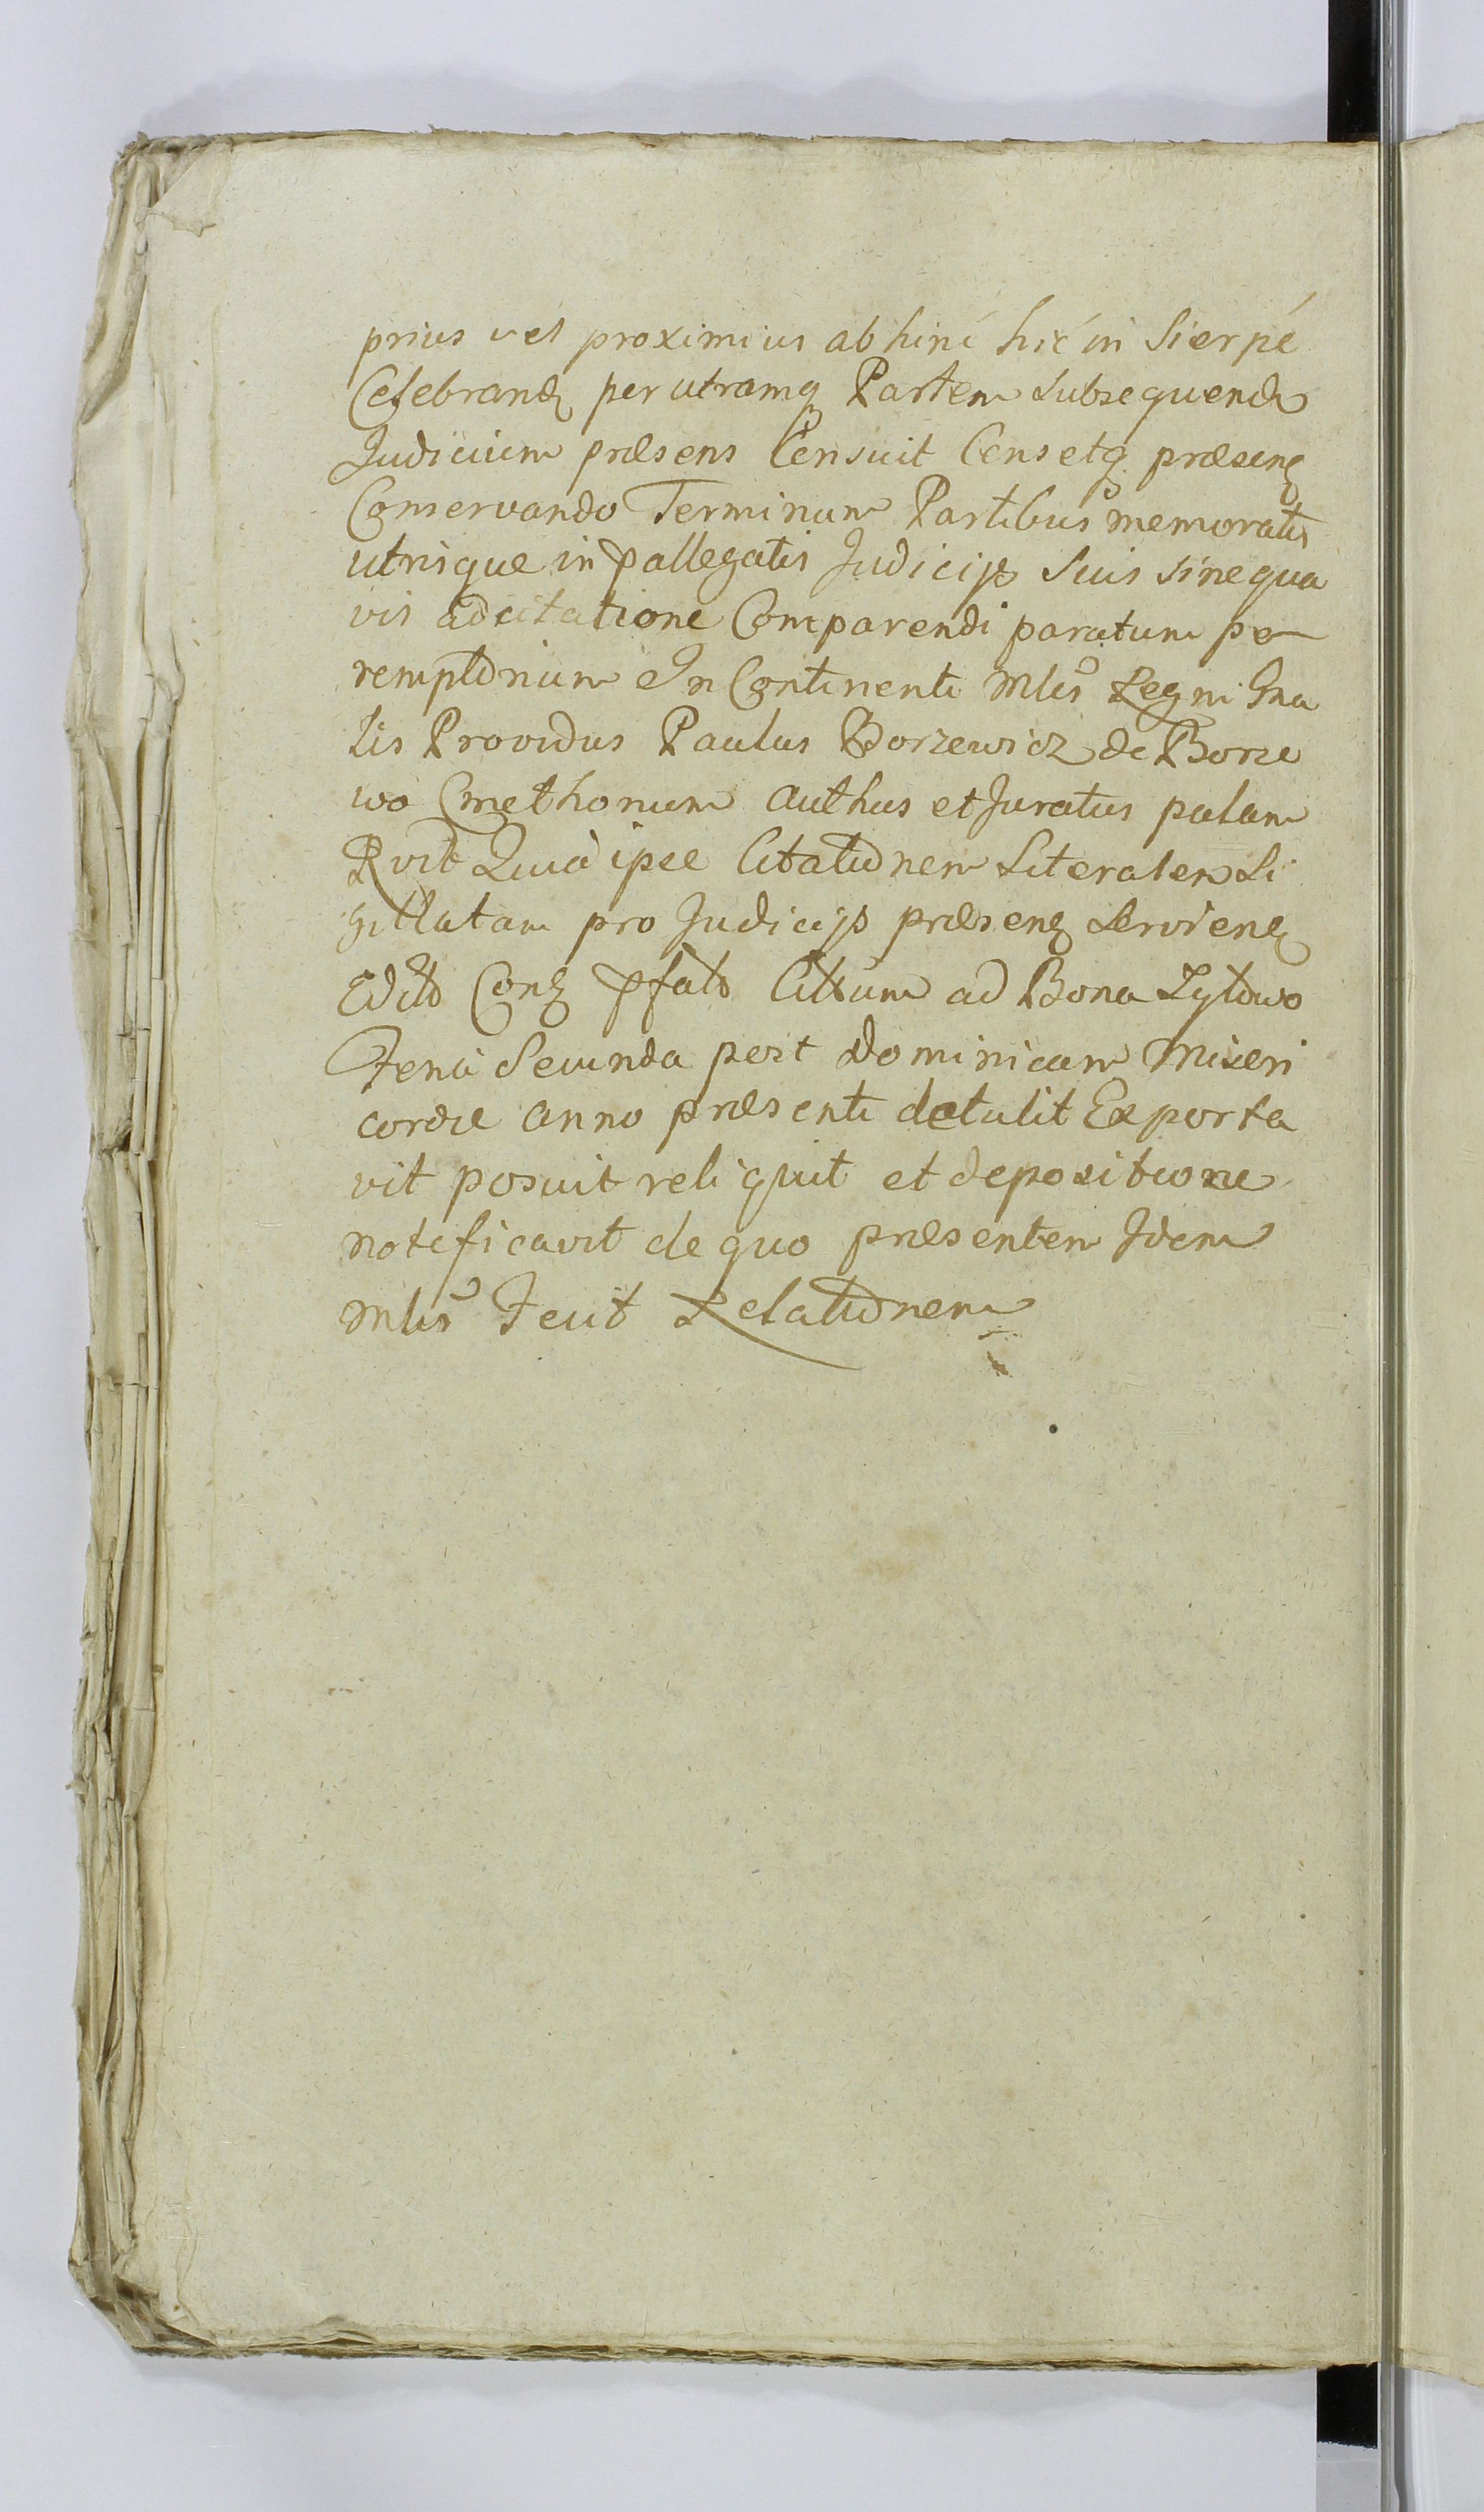 prius vel proximius ab hinc hic in Sierpc
Celebrand per utramq Partem subsequend
Judicium præsens Censuit Censetq præsen
Conservando Terminum Partibus memoratis
utrisque in pallegatis Judicijs Suis sine qua
vis adcitatione Comparendi paratum pe
remptorium In Continenti Mlis Regni Gna
lis Providus Paulus Borzewicz de Borze
wo Cmethonum authus et Juratus palam
Rvit Quia ipse Citationem Literalem Si
gillatam pro Judicijs præsen Servien
Edit Con pfato Citatum ad Bona
Feria Secunda post Dominicam Miseri
cordiæ anno præsenti detulit Exporta
vit posuit reliquit et depositione
notificavit de quo præsentem Idem
Mlis Fecit Relationem